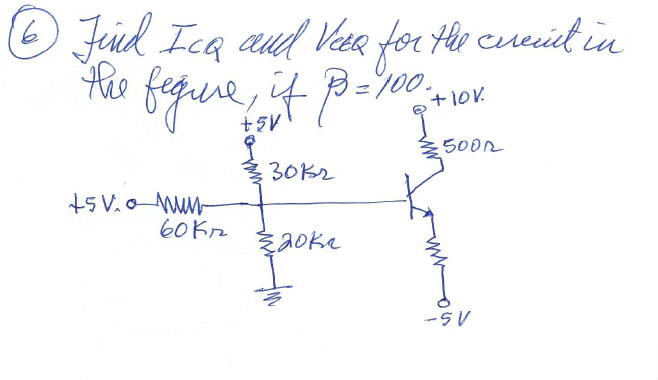 6 Find ICQ and VCEQ for the circuit in
the figure, if β = 100.
+10V.
+5V
500Ω
30KΩ
+5V.
60KΩ
20KΩ
-5V